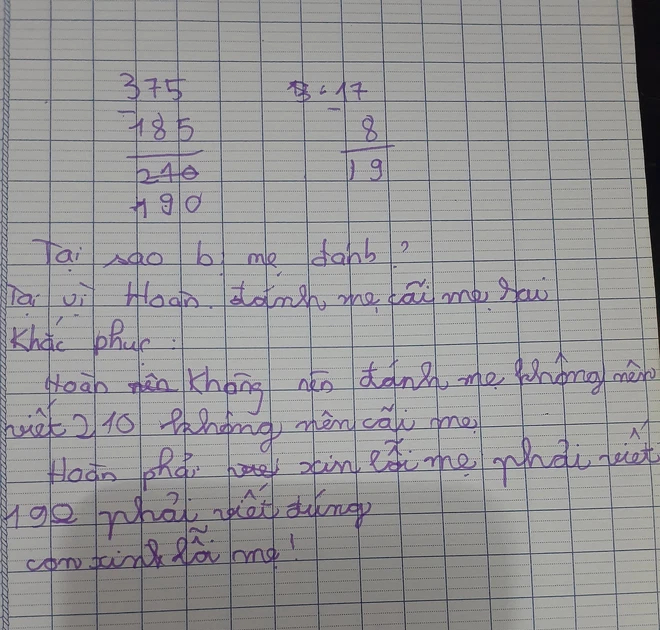 375 17
- 185 - 8
210 19
190
Tại sao bị mẹ đanh?
Tại vì Hoàn đánh mẹ cãi mẹ sai
Khắc phục:
Hoàn nên không nên đánh mẹ không nên
viết 210 không nên cãi mẹ
Hoàn phải xin lỗi mẹ phải viết
190 phải viết đúng
con xinh lỗi mẹ!